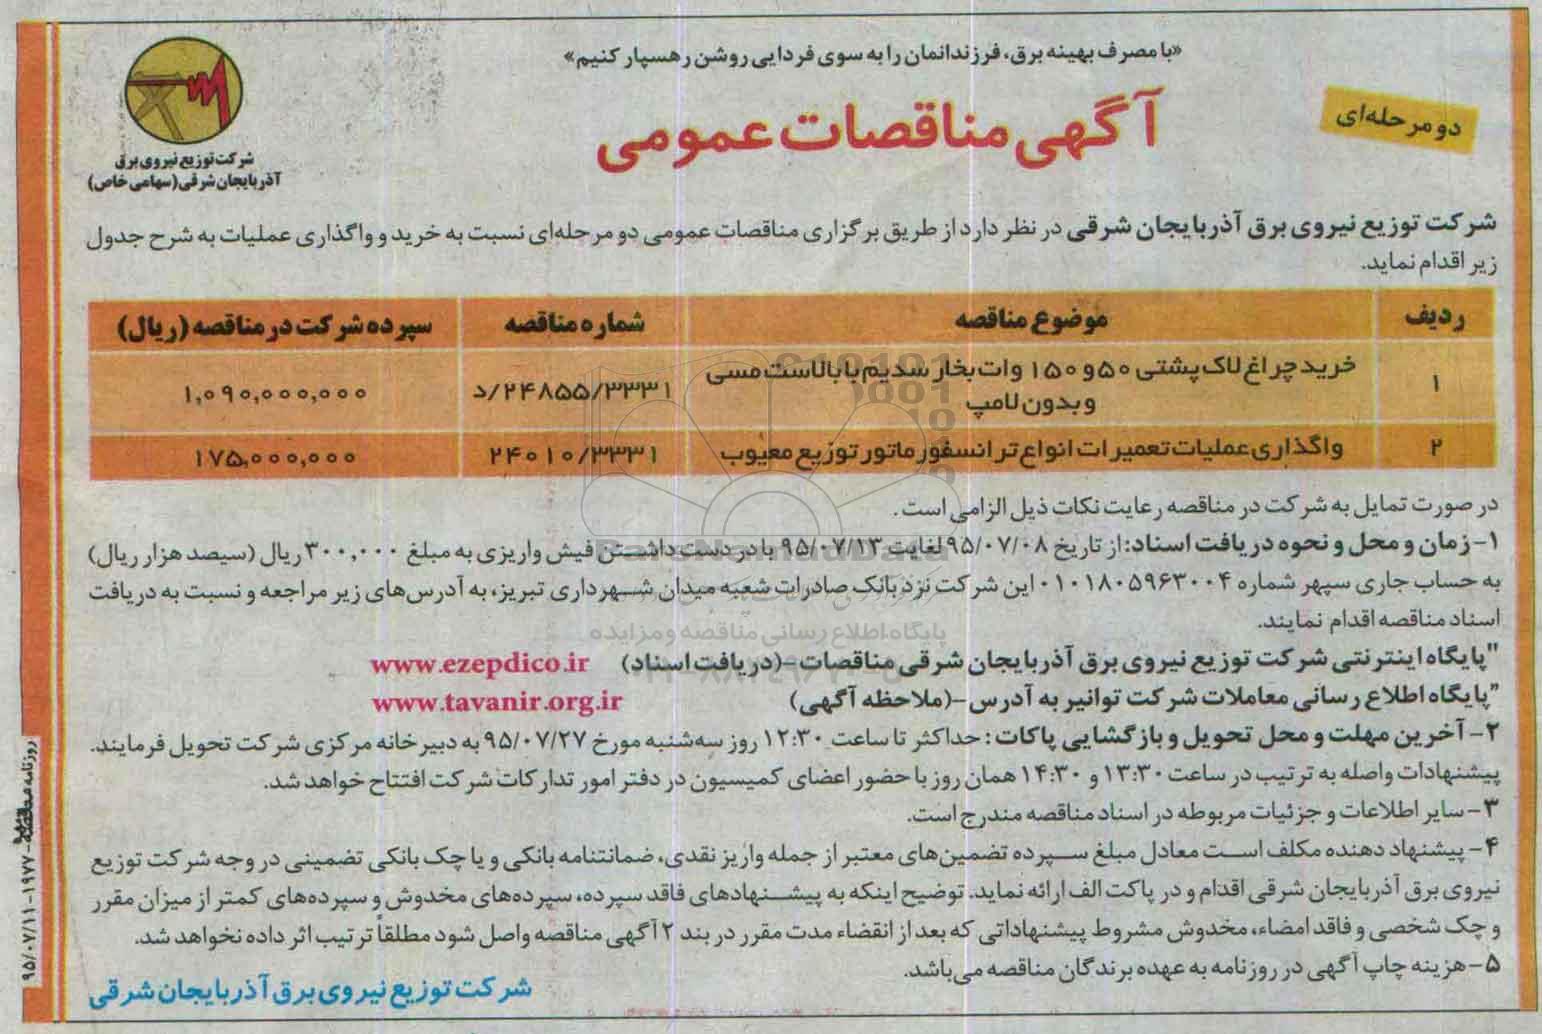 «با مصرف بهینه برق، فرزندانمان را به سوی فردایی روشن رهسپار کنیم»
دو مرحله‌ای
آگهی مناقصات عمومی
شرکت توزیع نیروی برق
آذربایجان شرقی (سهامی خاص)
شرکت توزیع نیروی برق آذربایجان شرقی در نظر دارد از طریق برگزاری مناقصات عمومی دو مرحله‌ای نسبت به خرید و واگذاری عملیات به شرح جدول
زیر اقدام نماید.
ردیف موضوع مناقصه شماره مناقصه سپرده شرکت در مناقصه (ریال)
۱ خرید چراغ لاک پشتی ۵۰ و ۱۵۰ وات بخار سدیم با بالاست مسی
و بدون لامپ ۲۴۸۵۵/۳۳۳۱/د ۱,۰۹۰,۰۰۰,۰۰۰
۲ واگذاری عملیات تعمیرات انواع ترانسفورماتور توزیع معیوب ۲۴۰۱۰/۳۳۳۱ ۱۷۵,۰۰۰,۰۰۰
در صورت تمایل به شرکت در مناقصه رعایت نکات ذیل الزامی است.
۱- زمان و محل و نحوه دریافت اسناد: از تاریخ ۹۵/۰۷/۰۸ لغایت ۹۵/۰۷/۱۳ با در دست داشتن فیش واریزی به مبلغ ۳۰۰,۰۰۰ ریال (سیصد هزار ریال)
به حساب جاری سپهر شماره ۰۱۰۱۸۰۵۹۶۳۰۰۴ این شرکت نزد بانک صادرات شعبه میدان شهرداری تبریز، به آدرس‌های زیر مراجعه و نسبت به دریافت
اسناد مناقصه اقدام نمایند.
"پایگاه اینترنتی شرکت توزیع نیروی برق آذربایجان شرقی مناقصات -(دریافت اسناد) www.ezepdico.ir
"پایگاه اطلاع رسانی معاملات شرکت توانیر به آدرس -(ملاحظه آگهی) www.tavanir.org.ir
۲- آخرین مهلت و محل تحویل و بازگشایی پاکات: حداکثر تا ساعت ۱۲:۳۰ روز سه‌شنبه مورخ ۹۵/۰۷/۲۷ به دبیرخانه مرکزی شرکت تحویل فرمایند.
پیشنهادات واصله به ترتیب در ساعت ۱۳:۳۰ و ۱۴:۳۰ همان روز با حضور اعضای کمیسیون در دفتر امور تدارکات شرکت افتتاح خواهد شد.
۳- سایر اطلاعات و جزئیات مربوطه در اسناد مناقصه مندرج است.
۴- پیشنهاد دهنده مکلف است معادل مبلغ سپرده تضمین‌های معتبر از جمله واریز نقدی، ضمانتنامه بانکی و یا چک بانکی تضمینی در وجه شرکت توزیع
نیروی برق آذربایجان شرقی اقدام و در پاکت الف ارائه نماید. توضیح اینکه به پیشنهادهای فاقد سپرده، سپرده‌های مخدوش و سپرده‌های کمتر از میزان مقرر
و چک شخصی و فاقد امضاء، مخدوش مشروط پیشنهاداتی که بعد از انقضاء مدت مقرر در بند ۲ آگهی مناقصه واصل شود مطلقاً ترتیب اثر داده نخواهد شد.
۵- هزینه چاپ آگهی در روزنامه به عهده برندگان مناقصه می‌باشد.
شرکت توزیع نیروی برق آذربایجان شرقی
۹۵/۰۷/۱۱-۱۹۷۷
روزنامه
ParsNamadData
پایگاه اطلاع رسانی مناقصه و مزایده